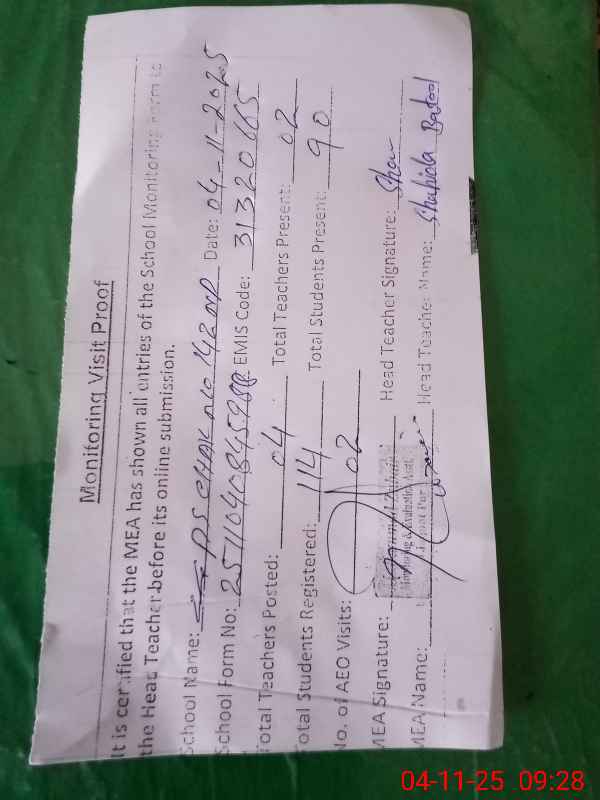 Monitoring Visit Proof
It is certified that the MEA has shown all entries of the School Monitoring Form to
the Head Teacher before its online submission.
School Name: PS CHAK NO 142 Date: 04-11-2025
School Form No: EMIS Code: 31320665
Total Teachers Posted: 04 Total Teachers Present: 02
Total Students Registered: 114 Total Students Present: 90
No. of AEO Visits: 02
MEA Signature: Head Teacher Signature:
Monitoring & Evaluation Asstt
MEA Name: Head Teacher Name: Shahida Batool
04-11-25 09:28